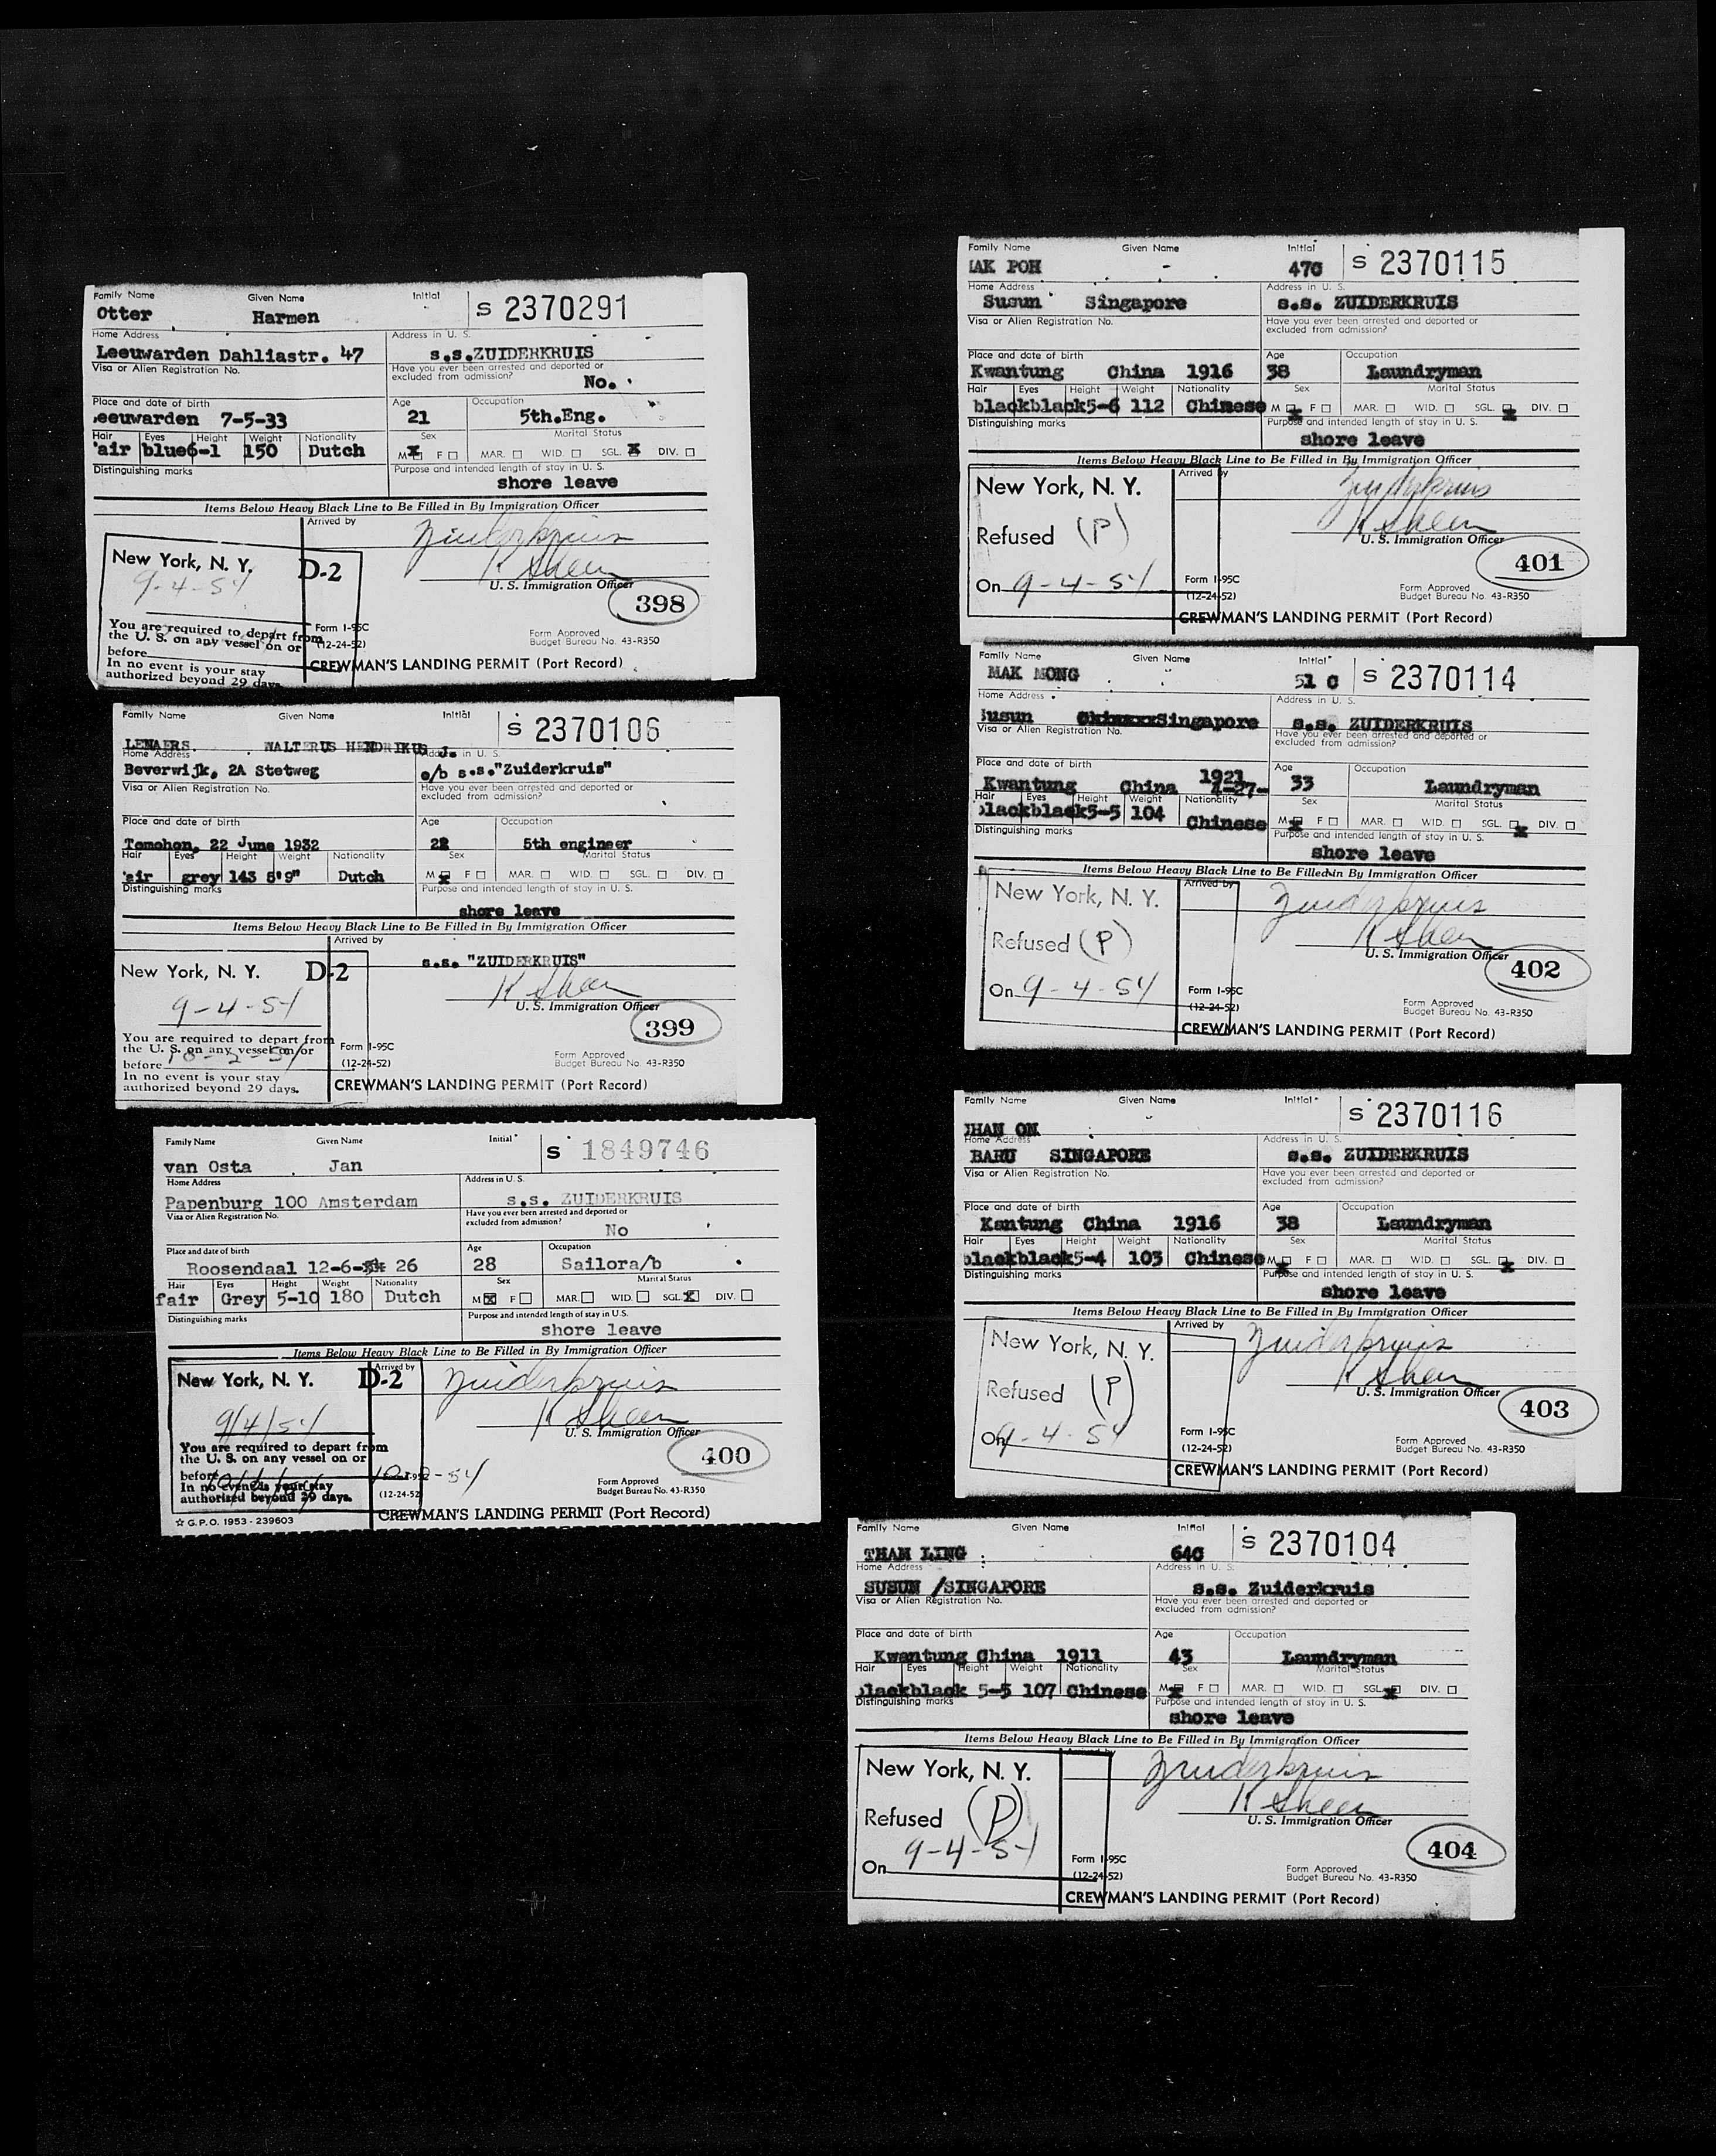 Family Name Given Name Initial S 2370291
Otter Harmen
Home Address Address in U. S.
Leeuwarden Dahliastr. 47 s.s.ZUIDERKRUIS
Visa or Alien Registration No. Have you ever been arrested and deported or excluded from admission?
No.
Place and date of birth Age Occupation
eeuwarden 7-5-33 21 5th.Eng.
Hair Eyes Height Weight Nationality Sex Marital Status
air blue6-1 150 Dutch M x F MAR. WID. SGL. x DIV.
Distinguishing marks Purpose and intended length of stay in U. S.
shore leave
Items Below Heavy Black Line to Be Filled in By Immigration Officer
Arrived by Zuiderkruis
New York, N. Y. D-2 K Sheen
9-4-54 U. S. Immigration Officer
398
You are required to depart from
the U. S. on any vessel on or
before
In no event is your stay
authorized beyond 29 days
Form I-95C
(12-24-52)
Form Approved
Budget Bureau No. 43-R350
CREWMAN'S LANDING PERMIT (Port Record)
Family Name Given Name Initial S 2370106
LENAERS. WALTERUS HENDRIKUS J.
Home Address Address in U. S.
Beverwijk, 2A Stetweg o/b s.s."Zuiderkruis"
Visa or Alien Registration No. Have you ever been arrested and deported or excluded from admission?
Place and date of birth Age Occupation
Tomohon, 22 June 1932 22 5th engineer
Hair Eyes Height Weight Nationality Sex Marital Status
air grey 143 5'9" Dutch M x F MAR. WID. SGL. DIV.
Distinguishing marks Purpose and intended length of stay in U. S.
shore leave
Items Below Heavy Black Line to Be Filled in By Immigration Officer
Arrived by
s.s. "ZUIDERKRUIS"
New York, N. Y. D-2 K Sheen
9-4-54 U. S. Immigration Officer
399
You are required to depart from
the U. S. on any vessel on or
before 10-2-54
In no event is your stay
authorized beyond 29 days.
Form I-95C
(12-24-52)
Form Approved
Budget Bureau No. 43-R350
CREWMAN'S LANDING PERMIT (Port Record)
Family Name Given Name Initial S 1849746
van Osta Jan
Home Address Address in U. S.
Papenburg 100 Amsterdam s.s. ZUIDERKRUIS
Visa or Alien Registration No. Have you ever been arrested and deported or excluded from admission?
No
Place and date of birth Age Occupation
Roosendaal 12-6- 26 28 Sailora/b
Hair Eyes Height Weight Nationality Sex Marital Status
fair Grey 5-10 180 Dutch M x F MAR. WID. SGL. x DIV.
Distinguishing marks Purpose and intended length of stay in U.S.
shore leave
Items Below Heavy Black Line to Be Filled in By Immigration Officer
Arrived by Zuiderkruis
New York, N. Y. D-2 K Sheen
9/4/54 U. S. Immigration Officer
400
You are required to depart from
the U. S. on any vessel on or
before
In no event is your stay
authorized beyond 29 days.
10-2-54
(12-24-52
Form Approved
Budget Bureau No. 43-R350
CREWMAN'S LANDING PERMIT (Port Record)
☆ G.P.O. 1953 - 239603
Family Name Given Name Initial S 2370115
AK POH - 47C
Home Address Address in U. S.
Susun Singapore s.s. ZUIDERKRUIS
Visa or Alien Registration No. Have you ever been arrested and deported or excluded from admission?
Place and date of birth Age Occupation
Kwantung China 1916 38 Laundryman
Hair Eyes Height Weight Nationality Sex Marital Status
blackblack5-6 112 Chinese M x F MAR. WID. SGL. x DIV.
Distinguishing marks Purpose and intended length of stay in U. S.
shore leave
Items Below Heavy Black Line to Be Filled in By Immigration Officer
Arrived by Zuiderkruis
New York, N. Y. K Sheen
Refused (P) U. S. Immigration Officer
401
On 9-4-54
Form I-95C
(12-24-52)
Form Approved
Budget Bureau No. 43-R350
CREWMAN'S LANDING PERMIT (Port Record)
Family Name Given Name Initial S 2370114
MAK MONG 51 C
Home Address Address in U. S.
Susun Singapore s.s. ZUIDERKRUIS
Visa or Alien Registration No. Have you ever been arrested and deported or excluded from admission?
Place and date of birth Age Occupation
1921
Kwantung China 4-27- 33 Laundryman
Hair Eyes Height Weight Nationality Sex Marital Status
lackblack5-5 104 Chinese M x F MAR. WID. SGL. x DIV.
Distinguishing marks Purpose and intended length of stay in U. S.
shore leave
Items Below Heavy Black Line to Be Filled in By Immigration Officer
Arrived by Zuiderkruis
New York, N. Y. K Sheen
Refused (P) U. S. Immigration Officer
402
On 9-4-54
Form I-95C
(12-24-52)
Form Approved
Budget Bureau No. 43-R350
CREWMAN'S LANDING PERMIT (Port Record)
Family Name Given Name Initial S 2370116
CHAN ON
Home Address Address in U. S.
BARU SINGAPORE s.s. ZUIDERKRUIS
Visa or Alien Registration No. Have you ever been arrested and deported or excluded from admission?
Place and date of birth Age Occupation
Kantung China 1916 38 Laundryman
Hair Eyes Height Weight Nationality Sex Marital Status
blackblack5-4 103 Chinese M x F MAR. WID. SGL. x DIV.
Distinguishing marks Purpose and intended length of stay in U. S.
shore leave
Items Below Heavy Black Line to Be Filled in By Immigration Officer
Arrived by Zuiderkruis
New York, N. Y. K Sheen
Refused (P) U. S. Immigration Officer
403
On 9-4-54
Form I-95C
(12-24-52)
Form Approved
Budget Bureau No. 43-R350
CREWMAN'S LANDING PERMIT (Port Record)
Family Name Given Name Initial S 2370104
THAM LING 64C
Home Address Address in U. S.
SUSUN /SINGAPORE s.s. Zuiderkruis
Visa or Alien Registration No. Have you ever been arrested and deported or excluded from admission?
Place and date of birth Age Occupation
Kwantung China 1911 43 Laundryman
Hair Eyes Height Weight Nationality Sex Marital Status
lackblack 5-5 107 Chinese M x F MAR. WID. SGL. x DIV.
Distinguishing marks Purpose and intended length of stay in U. S.
shore leave
Items Below Heavy Black Line to Be Filled in By Immigration Officer
Arrived by Zuiderkruis
New York, N. Y. K Sheen
Refused (P) U. S. Immigration Officer
404
On 9-4-54
Form I-95C
(12-24-52)
Form Approved
Budget Bureau No. 43-R350
CREWMAN'S LANDING PERMIT (Port Record)